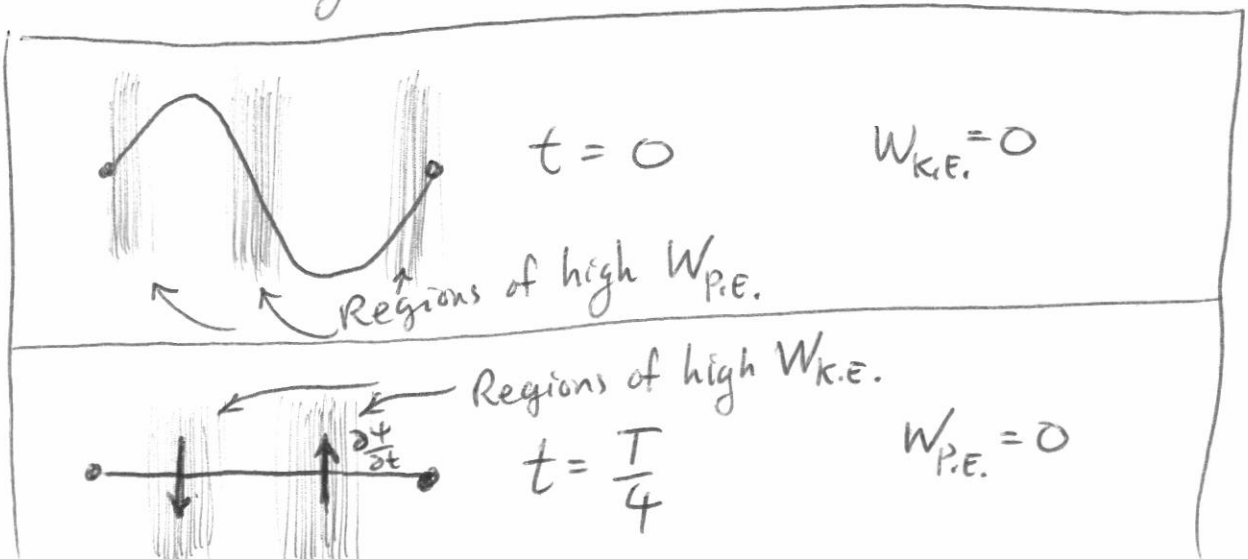 t = 0
W_{K.E.} = 0
Regions of high W_{P.E.}
Regions of high W_{K.E.}
∂ψ/∂t
t = T/4
W_{P.E.} = 0